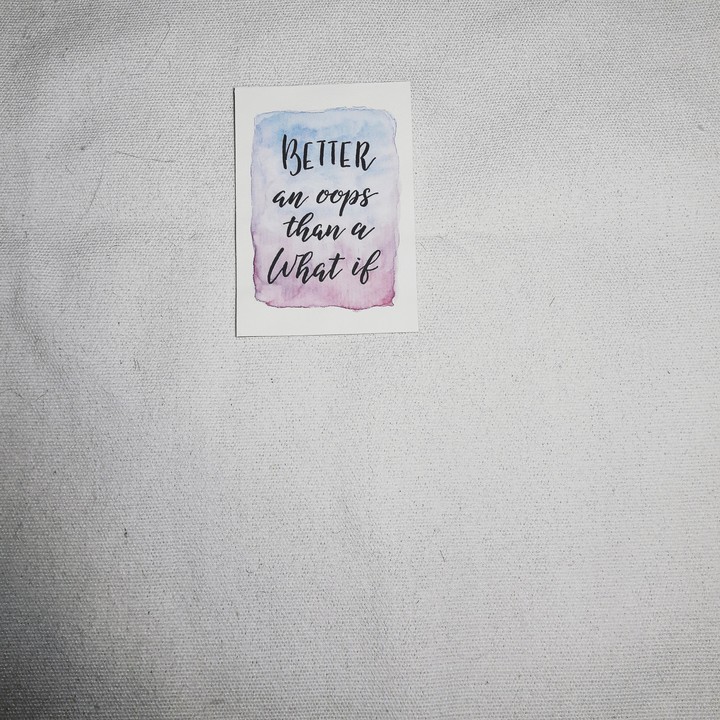 BETTER
an oops
than a
What if